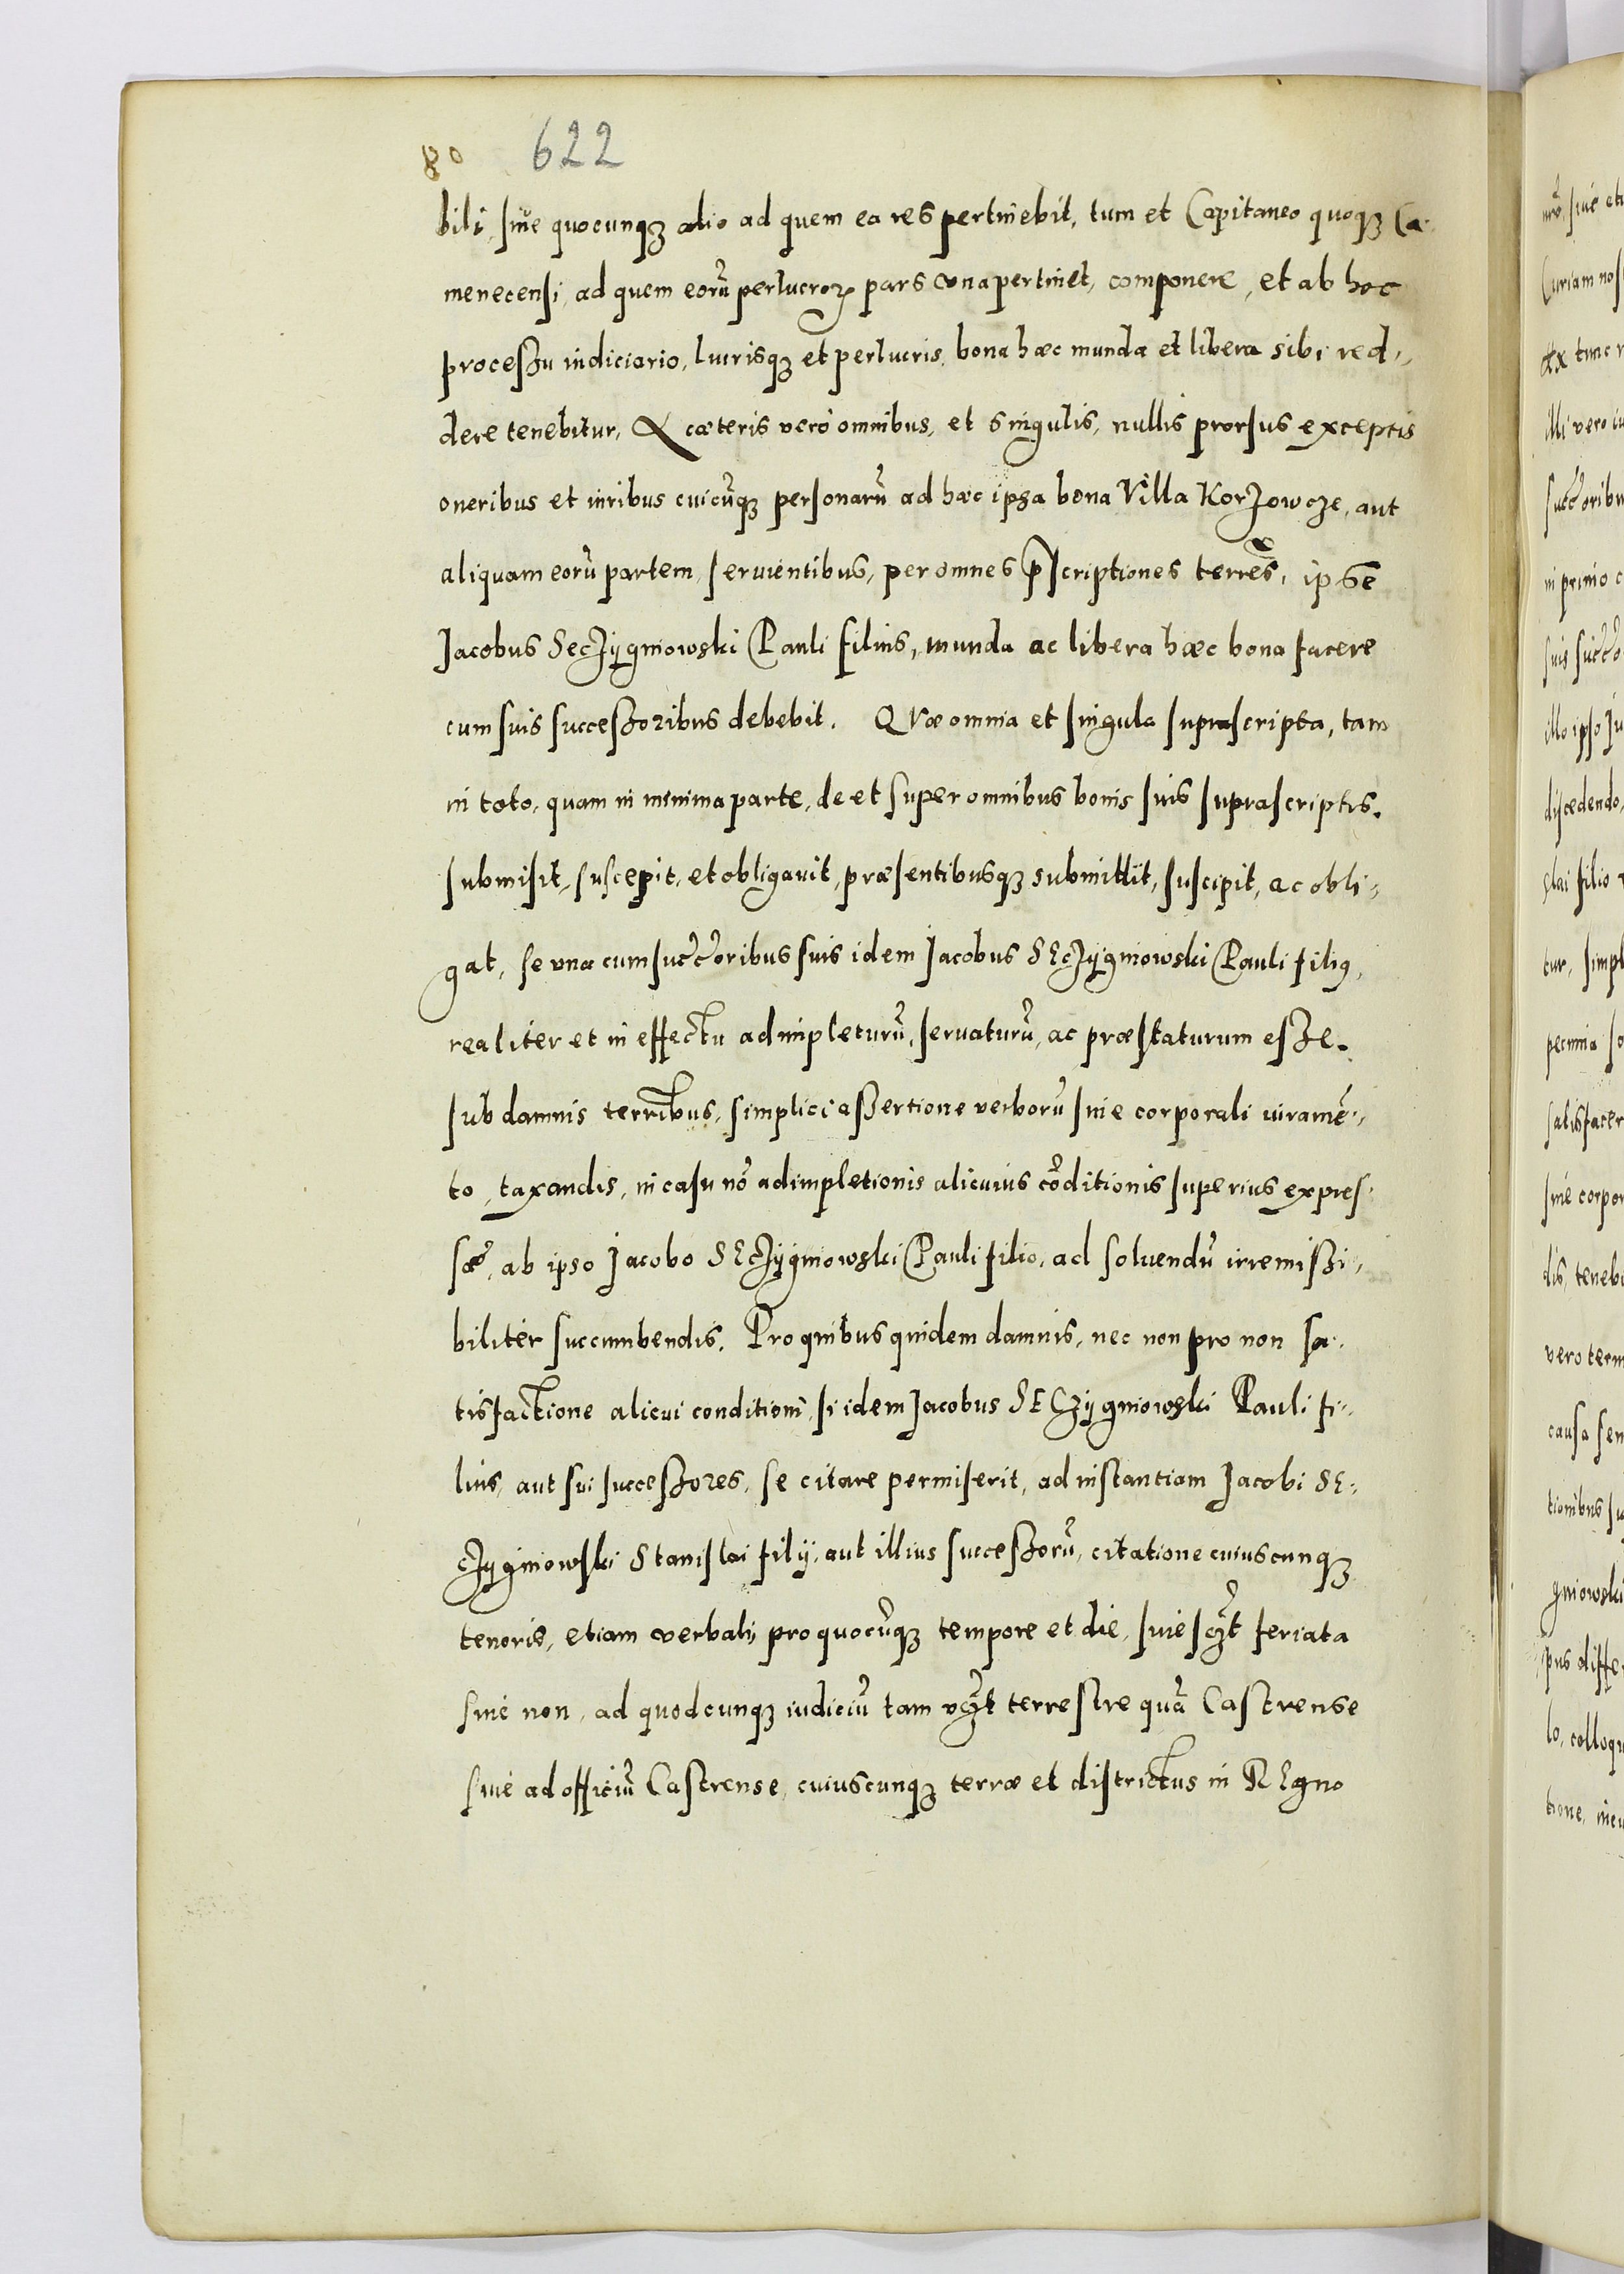 80 622
bili, siue quocunqꝫ alio ad quem ea res pertinebit, tum et Capitaneo quoqꝫ Ca-
menecensi, ad quem eorũ perlucroꝝ pars vna pertinet, componere, et ab hoc
processu iudiciario, lucrisqꝫ et perlucris, bona hæc munda et libera sibi red-
dere tenebitur, A cæteris verò omnibus, et singulis, nullis prorsus exceptis
oneribus et iuribus cuicũqꝫ personarũ ad hæc ipsa bona Villa Korzowcze, aut
aliquam eorũ partem seruientibus, per omnes p̃scriptiones terrẽs, ipse
Jacobus Seczygniowski Pauli filius, munda ac libera hæc bona facere
cum suis successoribus debebit. Quæ omnia et singula suprascripta, tam
in toto, quam in minima parte, de et super omnibus bonis suis suprascriptis.
submisit, suscepit, et obligauit, præsentibusqꝫ submittit, suscipit, ac obli-
gat, se vna cum succ̃oribus suis idem Jacobus Seczygniowski Pauli filiꝯ,
realiter et in effectu adimpleturũ, seruaturũ, ac præstaturum esse.
sub damnis terrĩbus, simplici assertione verborũ sine corporali iuramẽ-
to, taxandis, in casu nõ adimpletionis alicuius cõditionis superius expres-
sæ, ab ipso Jacobo Seczygniowski Pauli filio, ad soluendũ irremissi-
biliter succumbendis. Pro quibus quidem damnis, nec non pro non sa-
tisfactione alicui conditioni, si idem Jacobus Seczygniowski Pauli fi-
lius, aut sui successores, se citare permiserit, ad instantiam Jacobi Se-
czygniowski Stanislai filij, aut illius successorũ, citatione cuiuscunqꝫ
tenoris, etiam verbali, pro quocũqꝫ tempore et die, siue sc̃t feriata
siue non, ad quodcunqꝫ iudiciũ tam vcz̃t terrestre quã Castrense
siue ad officiũ Castrense, cuiuscunqꝫ terræ et districtus in Regno